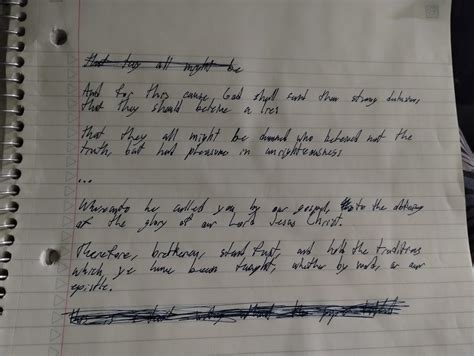 that they all might be
And for this cause, God shall send them strong delusion,
that they should believe a lies
that they all might be damned who believed not the
truth, but had pleasure in unrighteousness
...
Whereunto he called you by our gospel, to the obtaining
of the glory of our Lord Jesus Christ.
Therefore, bretheren, stand fast, and hold the traditions
which ye have been taught, whether by word, or our
epistle.